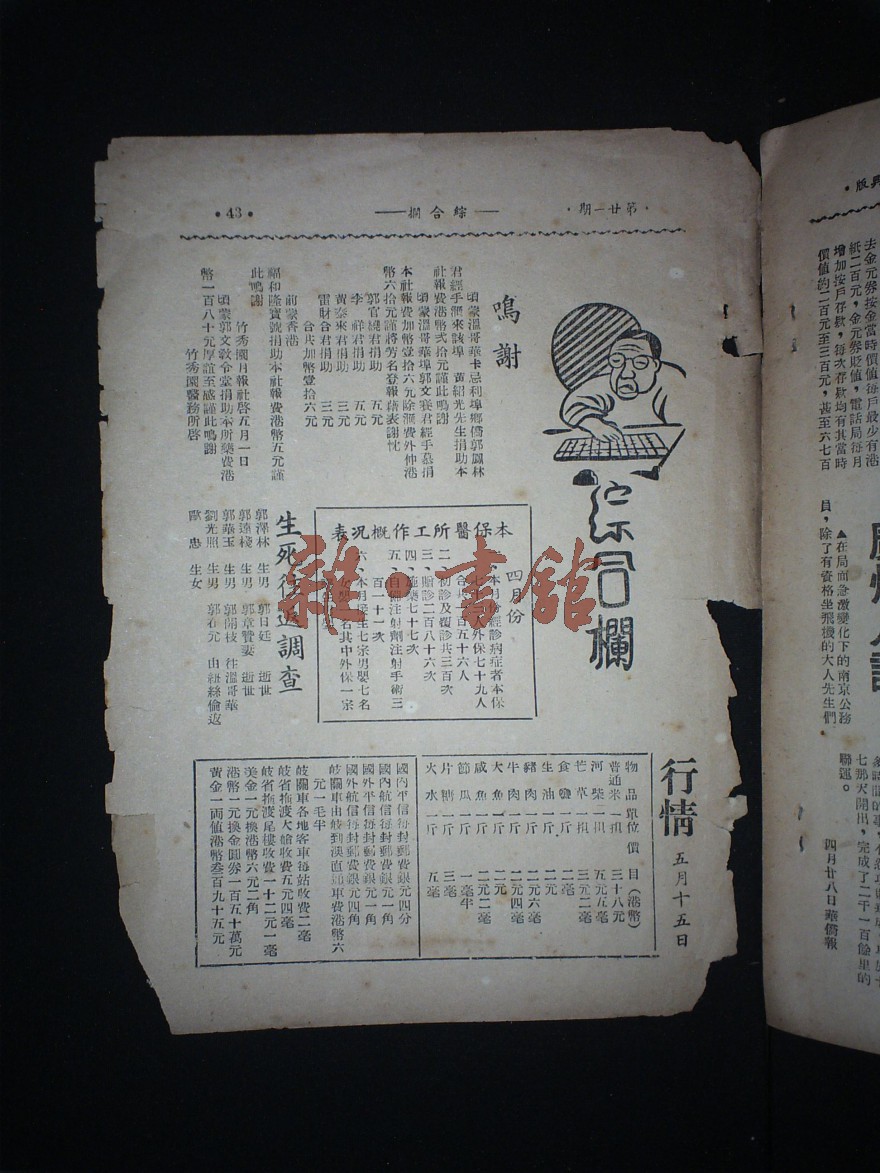 第廿一期
綜合欄
43
綜合欄
鳴謝
頃蒙溫哥華卡忌利埠鄉僑郭鳳林
君經手滙來該埠 黃紹光先生捐助本
社報費港幣弍拾元謹此鳴謝
頃蒙溫哥華埠郭文賽君經手惎捐
本社報費加幣壹拾六元除滙費外伸港
幣六拾元謹將芳名登報藉表謝忱
郭官總君捐助 五元
李 祥君捐助 五元
黃泰來君捐助 三元
雷財合君捐助 三元
合共加幣壹拾六元
前蒙香港
福和隆寶號捐助本社報費港幣五元謹
此鳴謝
竹秀園月報社啓五月一日
頃蒙郭文敎令堂捐助本所藥費港
幣一百八十元厚誼至感謹此鳴謝
竹秀園醫務所啓
本保醫所工作概況表
四月份
本月份經診病症者本保
七十七人外保七十九人
合共一百五十六人
二、初診及覆診共三百次
三、贈診二百八十六次
四、施藥七十七次
五、自備注射劑注射手術三
百一十一次
六、本月接生七宗男嬰七名
名其中外保一宗
生死往返調查
郭澤林 生男 郭日廷 逝世
郭達棧 生男 郭章贊妻 逝世
郭華玉 生男 郭開枝 往溫哥華
劉光照 生男 郭右元 由紐絲倫返
歐 惠 生女
行情 五月十五日
物品單位價目(港幣)
普通米一担 三十八元
河柴一担 五元五毫
芒草一担 三元二毫
食鹽一斤 二毫
生油一斤 二元
豬肉一斤 二元六毫
牛肉一斤 二元四毫
大魚一斤 二元
咸魚一斤 二元二毫
節瓜一斤 一毫半
片糖一斤 三毫
火水一斤 五毫
國內平信每封郵費銀元四分
國內航信每封郵費銀元一角
國外平信每封郵費銀元一角
國外航信每封郵費銀元四角
岐關車由岐到澳直通車費港幣六
元一毛半
岐關車各地客車每站收費二毫
岐省拖渡大艙收費五元四毫
岐省拖渡尾樓收費一十二元一毫
美金一元換港幣六元二角
港幣一元換金圓券一百五十萬元
黃金一両值港幣叁百九十五元
版
去金元券按金當時價值每戶最少有港
紙二百元，金元券貶值，電話局每月
增加按戶存欵，每次存欵均有其當時
價值的二百元至三百元，甚至六七百
▲在局面急激變化下的南京公務
員，除了有資格坐飛機的大人先生們
七那天開出，完成了二千一百餘里的
聯運。
四月廿八日華僑報
雜書館